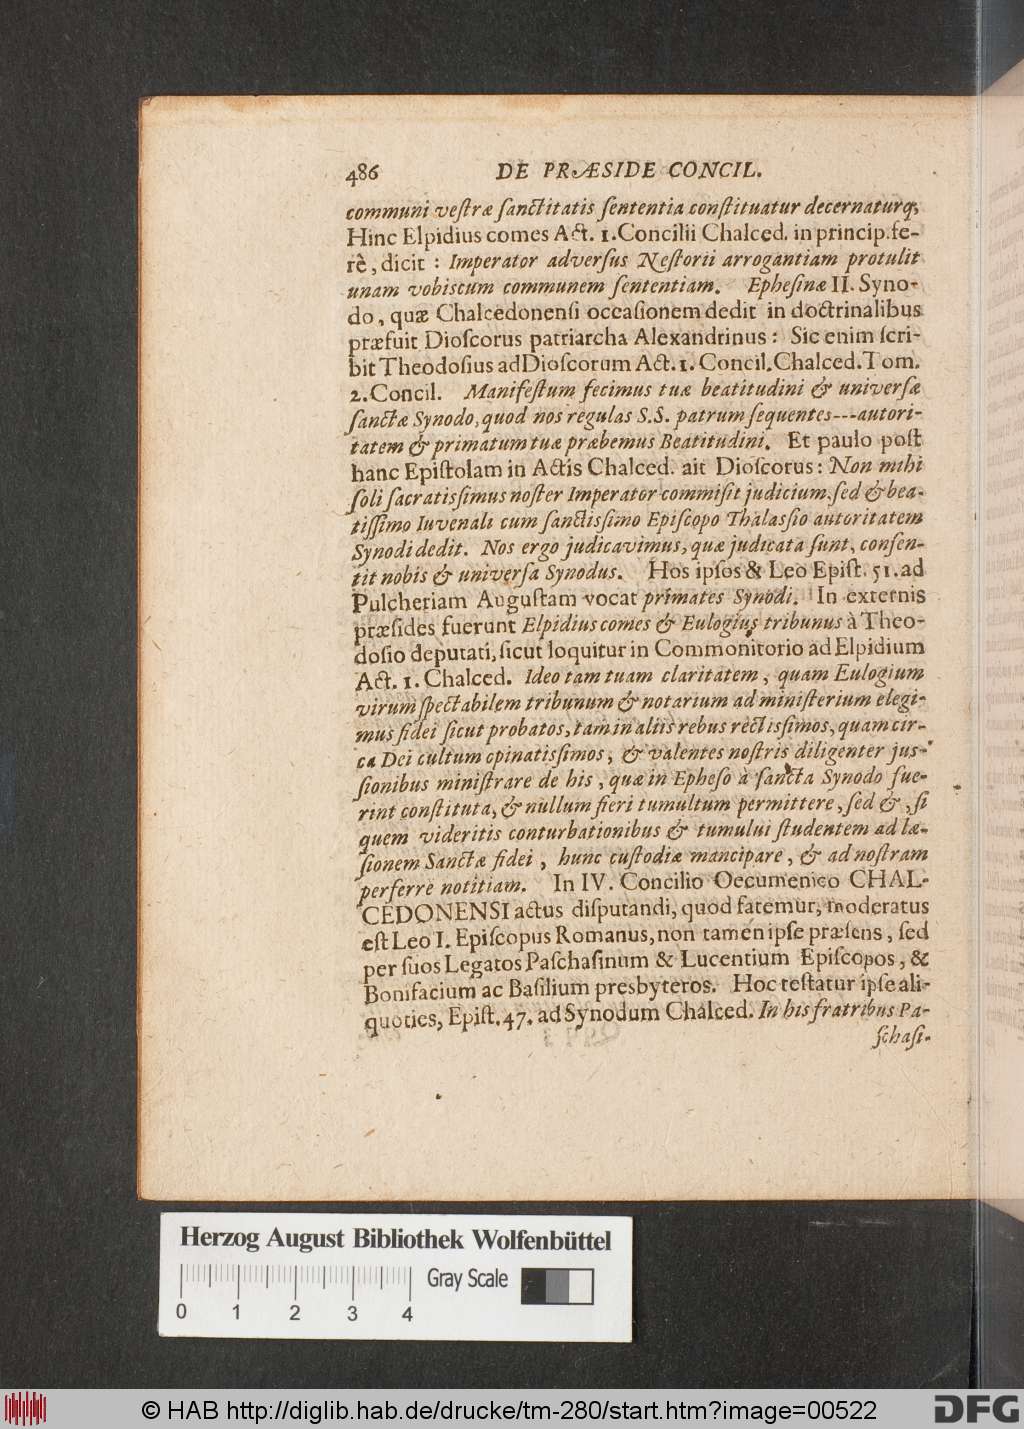 486 DE PRÆSIDE CONCIL.
communi veſtræ ſanctitatis ſententia conſtituatur decernaturq;
Hinc Elpidius comes Act. 1. Concilii Chalced. in princip. fe-
rè, dicit : Imperator adverſus Neſtorii arrogantiam protulit
unam vobiscum communem ſententiam. Epheſinæ II. Syno-
do, quæ Chalcedonenſi occaſionem dedit in doctrinalibus
præfuit Dioſcorus patriarcha Alexandrinus : Sic enim ſcri-
bit Theodoſius ad Dioſcorum Act. 1. Concil. Chalced. Tom.
2. Concil. Manifeſtum fecimus tuæ beatitudini & univerſæ
ſanctæ Synodo, quod nos regulas S.S. patrum ſequentes---autori-
tatem & primatum tuæ præbemus Beatitudini. Et paulo poſt
hanc Epiſtolam in Actis Chalced. ait Dioſcorus : Non mihi
ſoli ſacratisſimus noſter Imperator commiſit judicium, ſed & bea-
tiſſimo Iuvenali cum ſanctisſimo Epiſcopo Thalasſio autoritatem
Synodi dedit. Nos ergo judicavimus, quæ judicata ſunt, conſen-
tit nobis & univerſa Synodus. Hos ipſos & Leo Epiſt. 51. ad
Pulcheriam Auguſtam vocat primates Synodi. In externis
præſides fuerunt Elpidius comes & Eulogius tribunus à Theo-
doſio deputati, ſicut loquitur in Commonitorio ad Elpidium
Act. 1. Chalced. Ideo tam tuam claritatem, quam Eulogium
virum ſpectabilem tribunum & notarium ad miniſterium elegi-
mus fidei ſicut probatos, tam in aliis rebus rectisſimos, quam cir-
ca Dei cultum opinatisſimos, & valentes noſtris diligenter juſ-
ſionibus miniſtrare de his, quæ in Epheſo à ſancta Synodo fue-
rint conſtituta, & nullum fieri tumultum permittere, ſed &, ſi
quem videritis conturbationibus & tumului ſtudentem ad læ-
ſionem Sanctæ fidei, hunc cuſtodiæ mancipare, & ad noſtram
perferre notitiam. In IV. Concilio Oecumenico CHAL-
CEDONENSI actus diſputandi, quod fatemur, moderatus
eſt Leo I. Epiſcopus Romanus, non tamen ipſe præſens, ſed
per ſuos Legatos Paſchaſinum & Lucentium Epiſcopos, &
Bonifacium ac Baſilium presbyteros. Hoc teſtatur ipſe ali-
quoties, Epiſt. 47. ad Synodum Chalced. In his fratribus Pa-
ſchaſi-
Herzog August Bibliothek Wolfenbüttel
Gray Scale
0 1 2 3 4
© HAB http://diglib.hab.de/drucke/tm-280/start.htm?image=00522
DFG